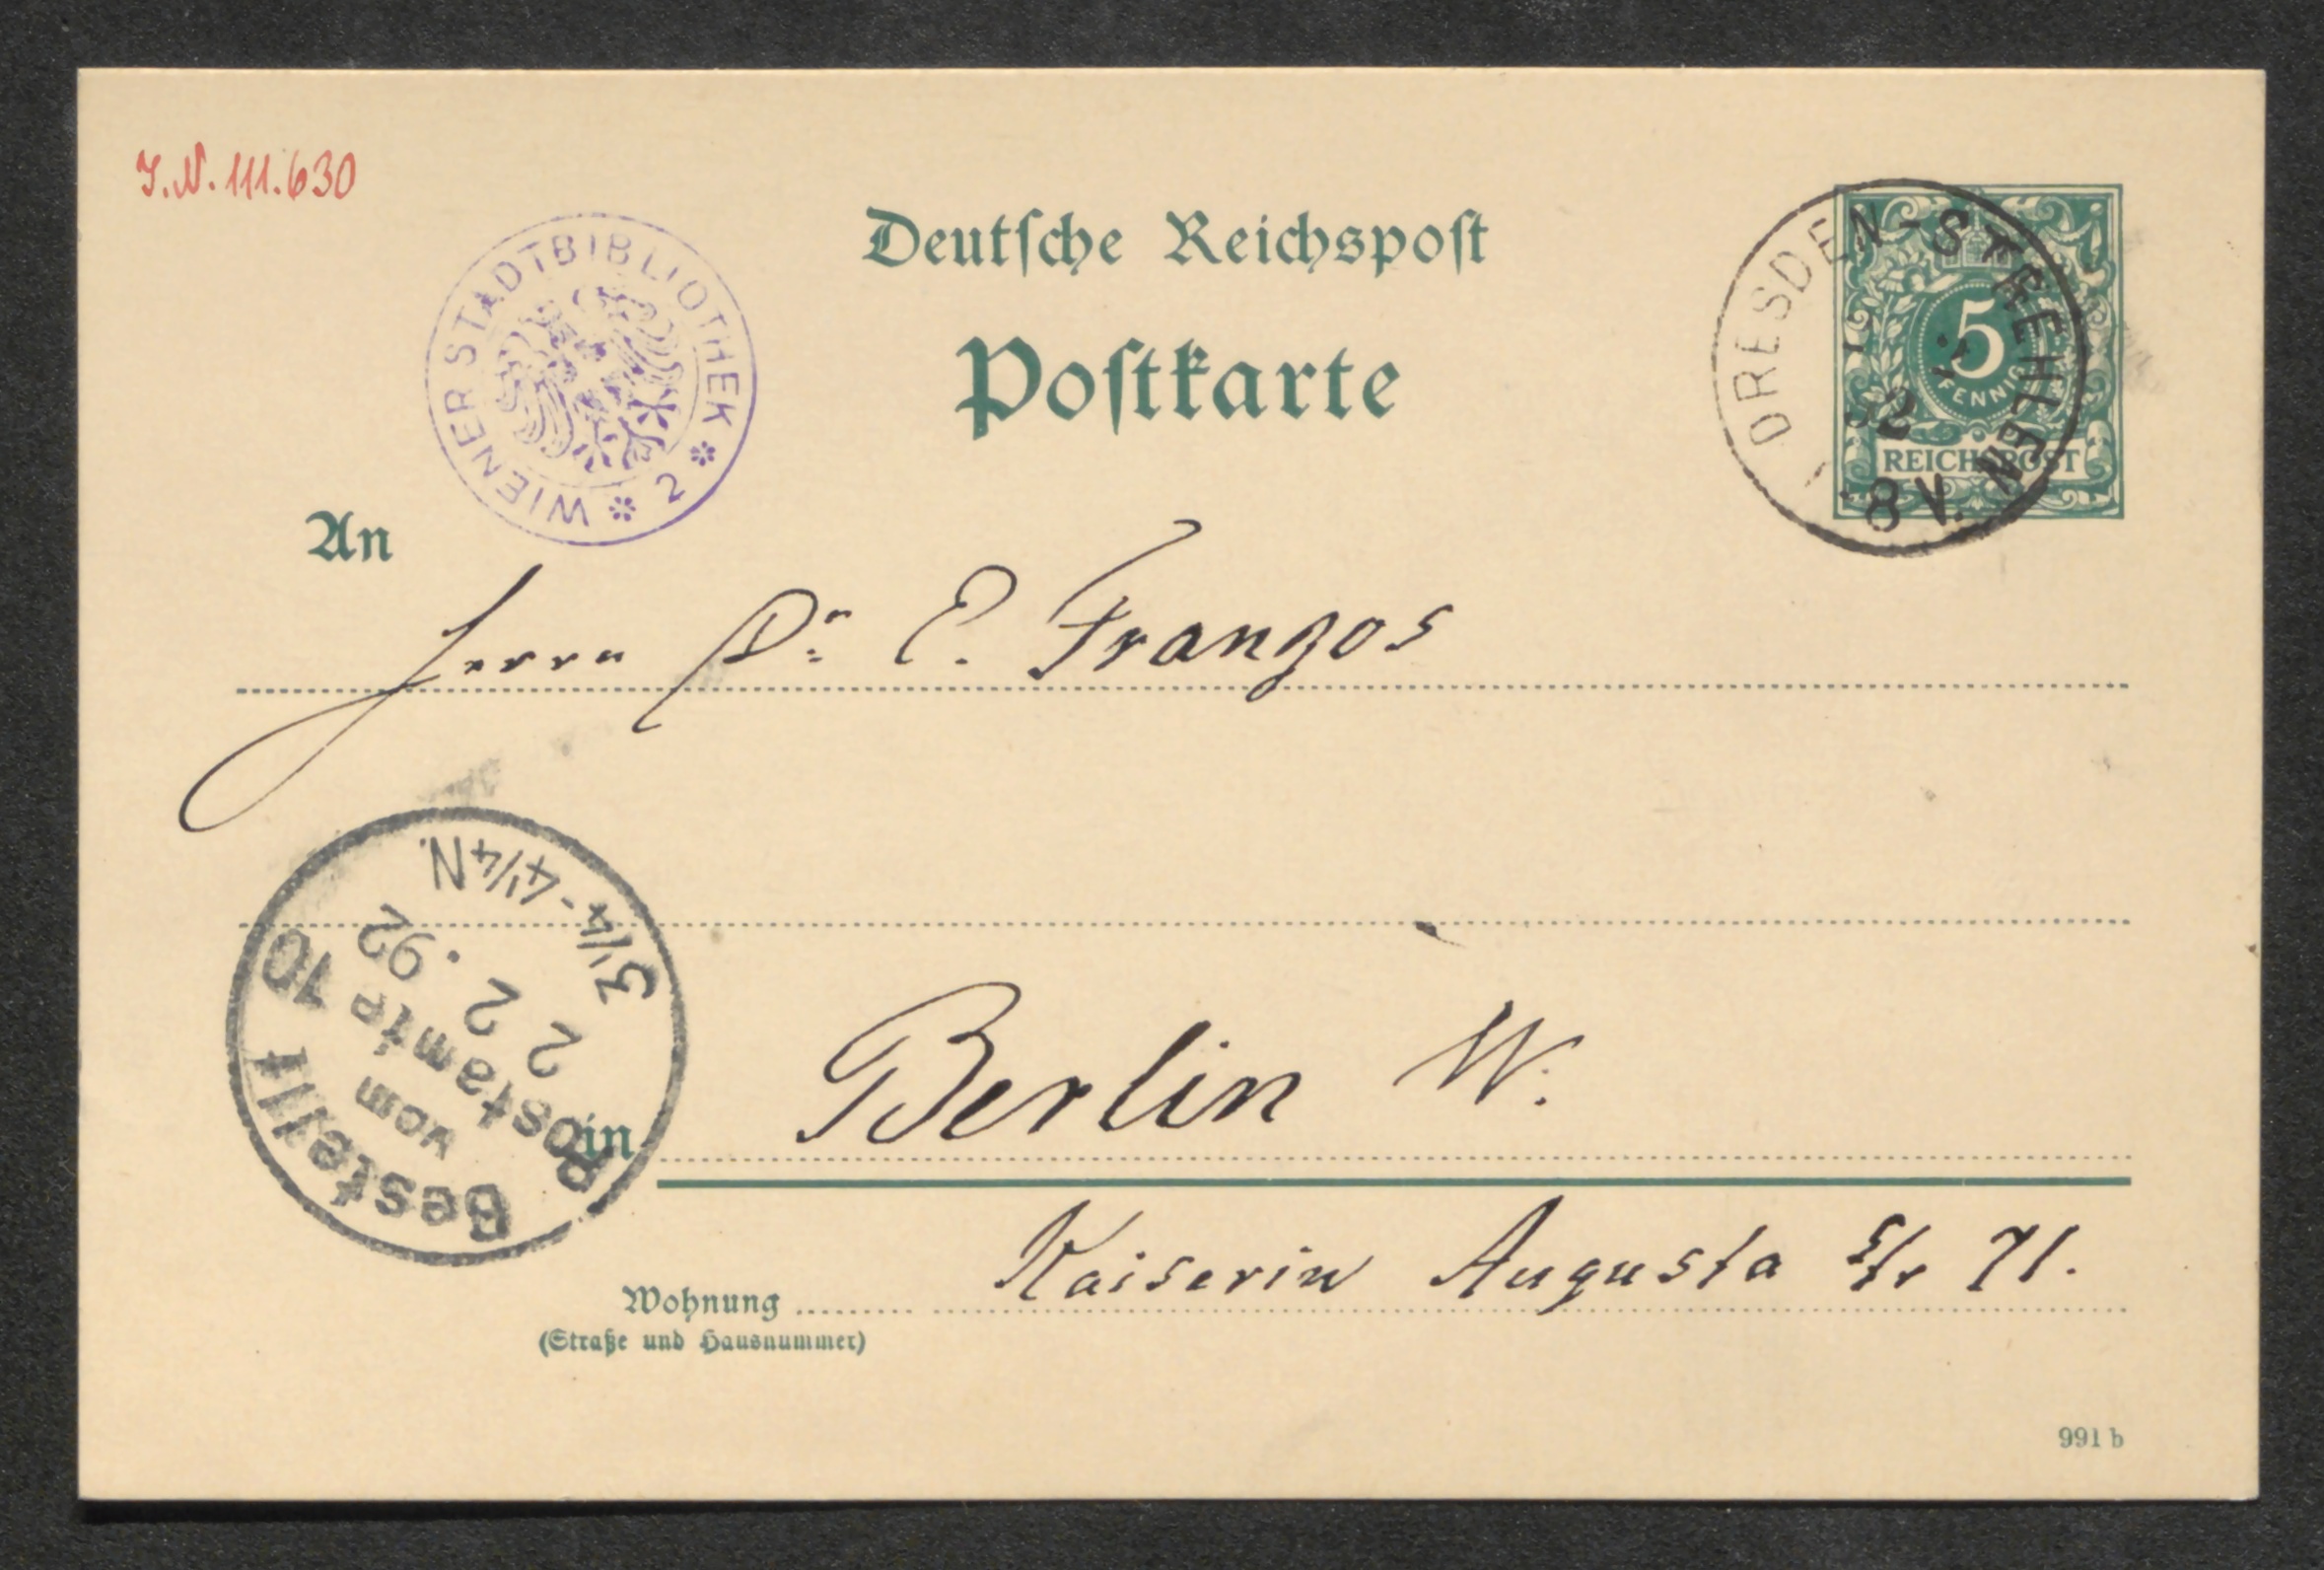 J.N. 111.630
WIENER STADTBIBLIOTHEK * 2 *
Deutsche Reichspost
Postkarte
DRESDEN-STREHLEN
92
8 V.
5
PFENNIG
REICHSPOST
An
Herrn Dr. E. Franzos
Bestellt
vom
Postamte 10
2 2 .92
3 1/4 - 4 1/4 N.
in Berlin W.
Kaiserin Augusta Str 71.
Wohnung
(Straße und Hausnummer)
991 b